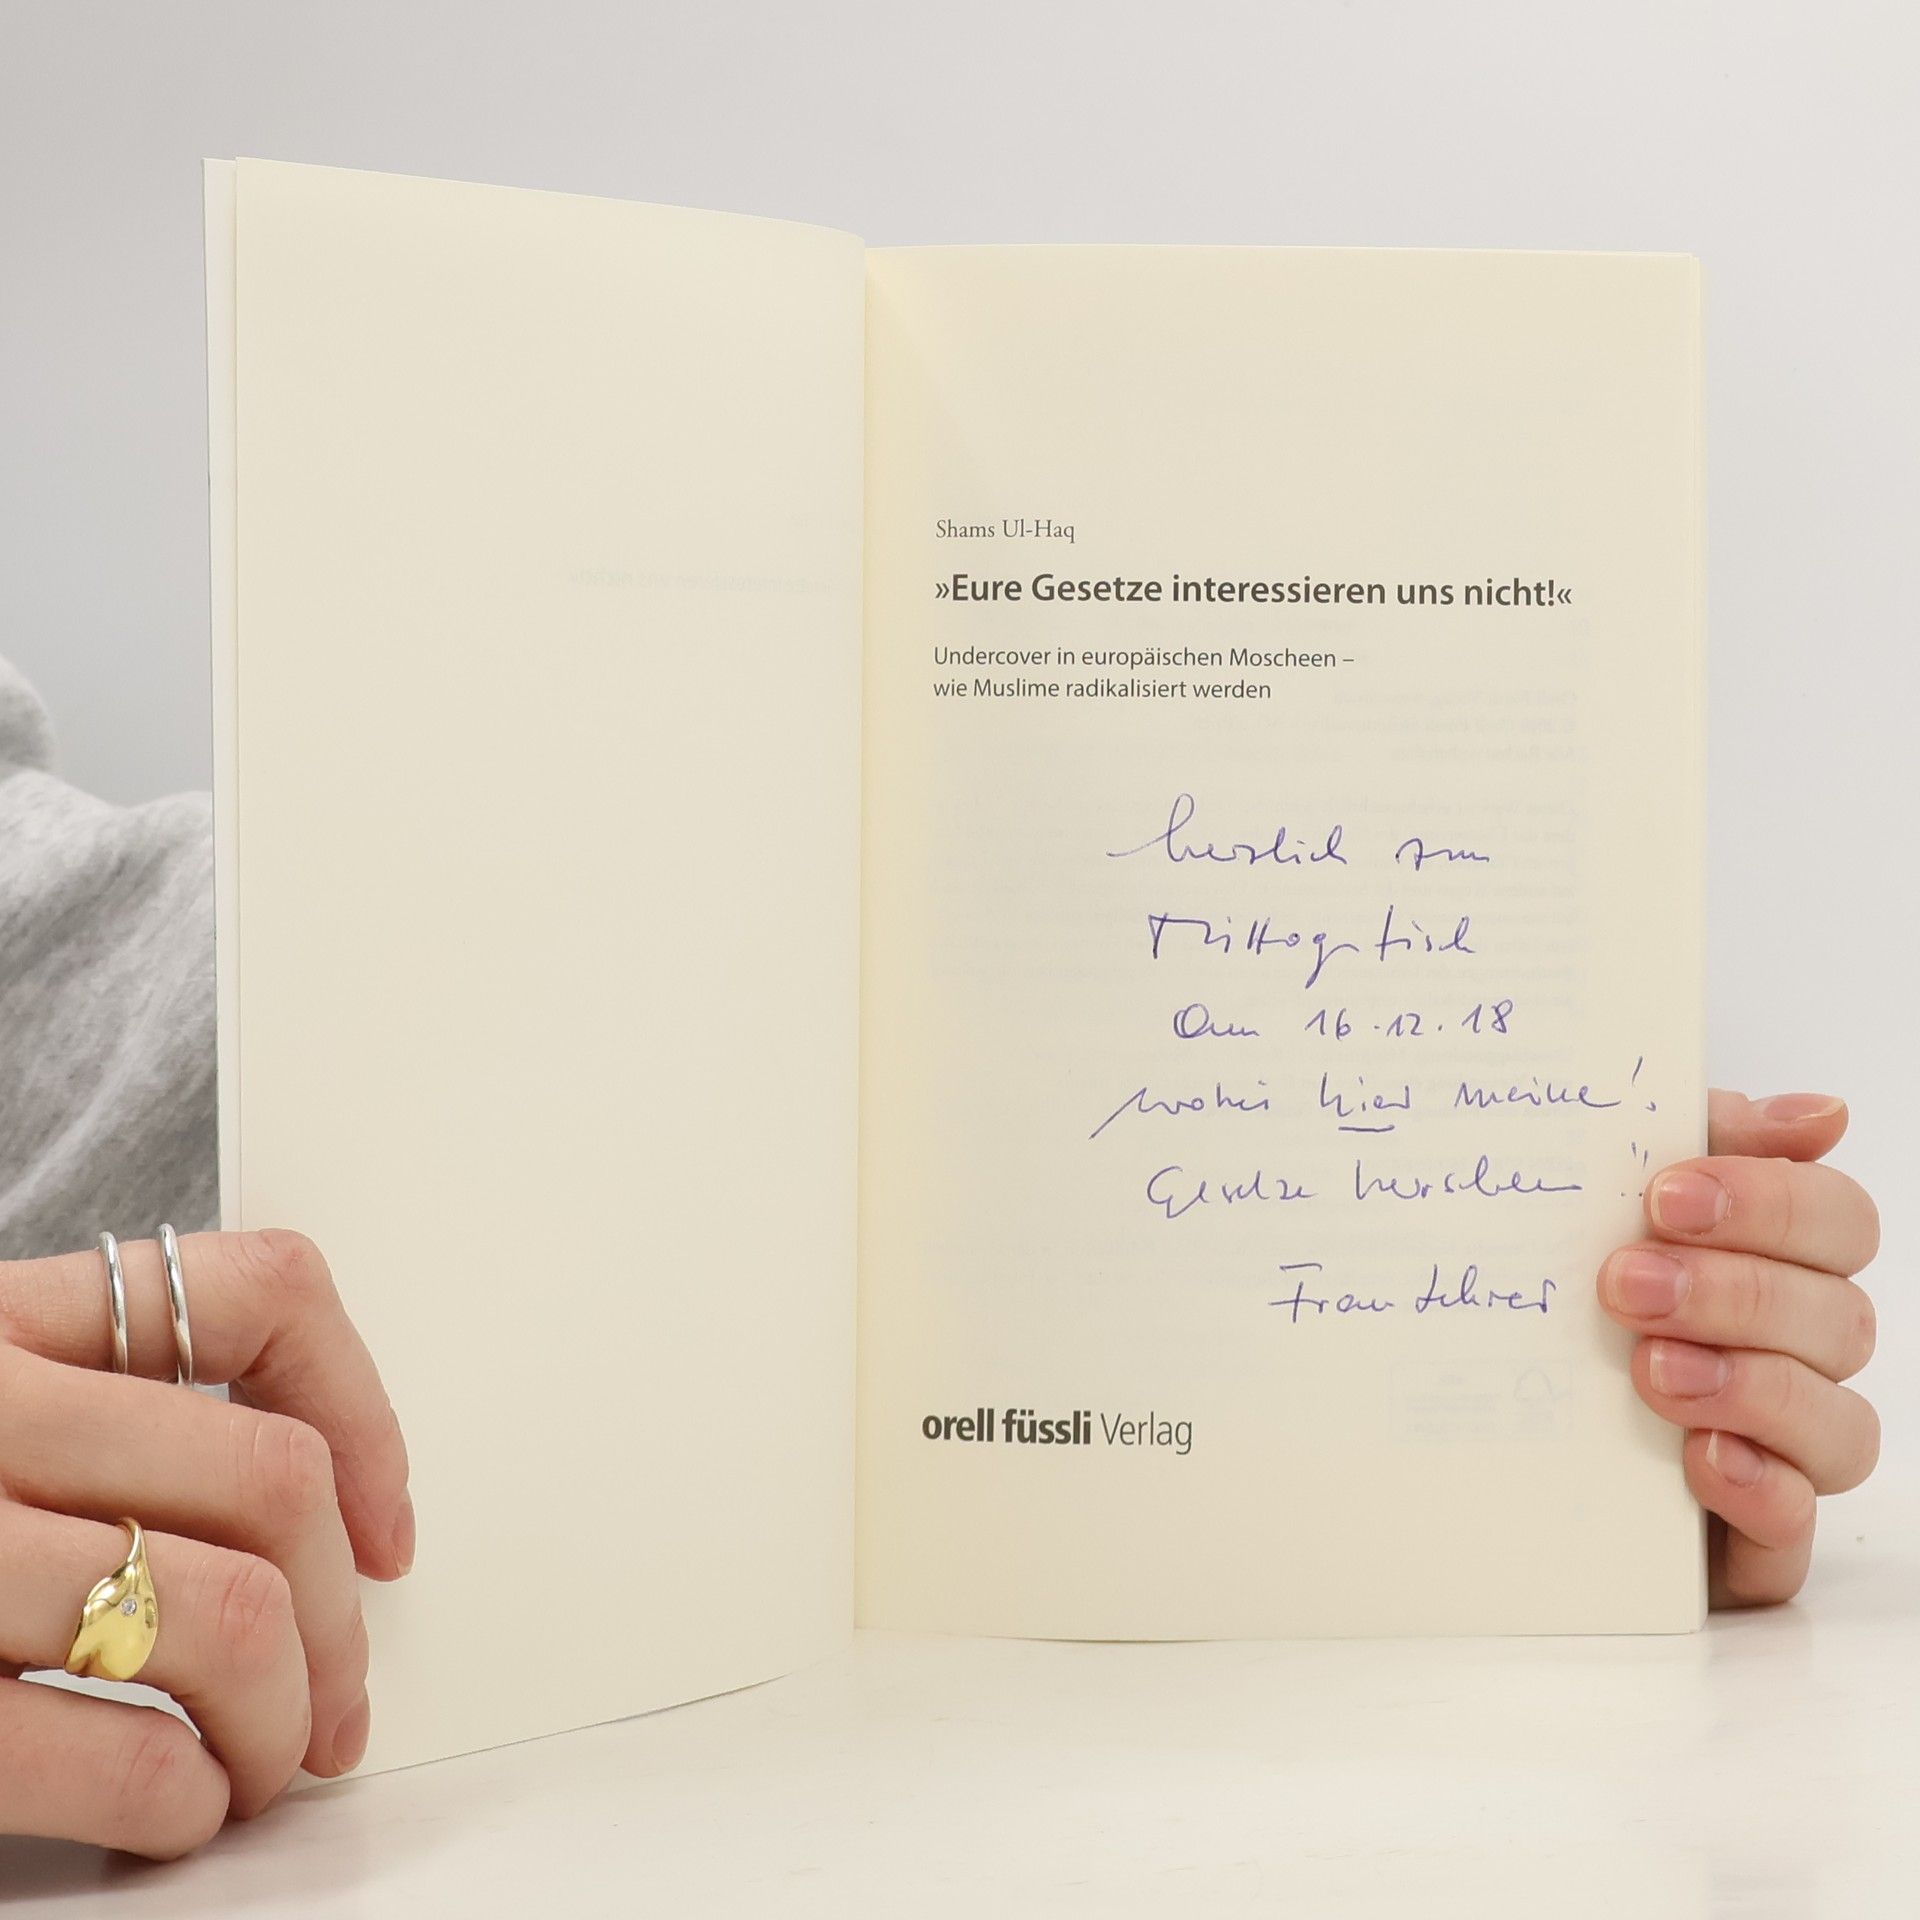 Shams Ul-Haq
»Eure Gesetze interessieren uns nicht!«
Undercover in europäischen Moscheen –
wie Muslime radikalisiert werden
herzlich zum
Mittagstisch
am 16.12.18
wobei hier meine!
Gesetze herschen!!
Frau Lehrer
orell füssli Verlag